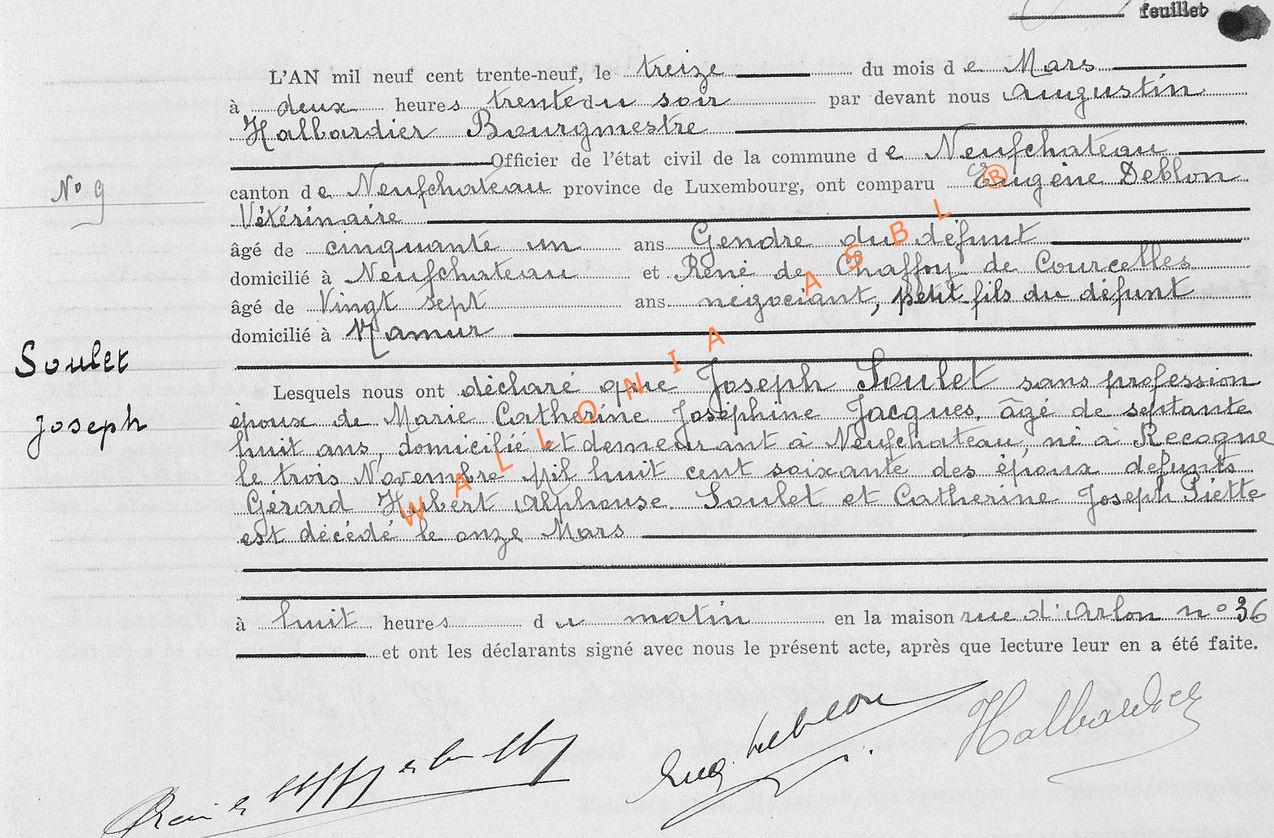 feuillet
L'AN mil neuf cent trente-neuf, le treize du mois de Mars
à deux heures trente du soir par devant nous Augustin
Halbardier Bourgmestre
Officier de l'état civil de la commune de Neufchateau
No 9
canton de Neufchateau province de Luxembourg, ont comparu Eugène Deblon
Vétérinaire
âgé de cinquante un ans Gendre du défunt
domicilié à Neufchateau et René de Chaffoy de Courcelles
âgé de Vingt sept ans négociant, petit fils du défunt
domicilié à Namur
Soulet
Joseph
Lesquels nous ont déclaré que Joseph Soulet sans profession
époux de Marie Catherine Joséphine Jacques, âgé de septante
huit ans, domicilié et demeurant à Neufchateau, né à Recogne
le trois Novembre Mil huit cent soixante des époux défunts
Gérard Hubert Alphonse Soulet et Catherine Joseph Piette
est décédé le onze Mars
à huit heures du matin en la maison rue d'Arlon n° 36
et ont les déclarants signé avec nous le présent acte, après que lecture leur en a été faite.
Eug. Deblon
Halbardier
WALLONIA ASBL ®